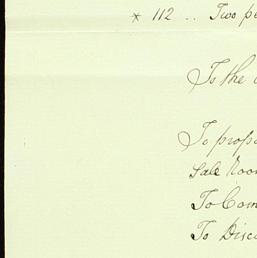 * 112 .. Two pe
To the
To propo
Sale Room
To Com
To Disc